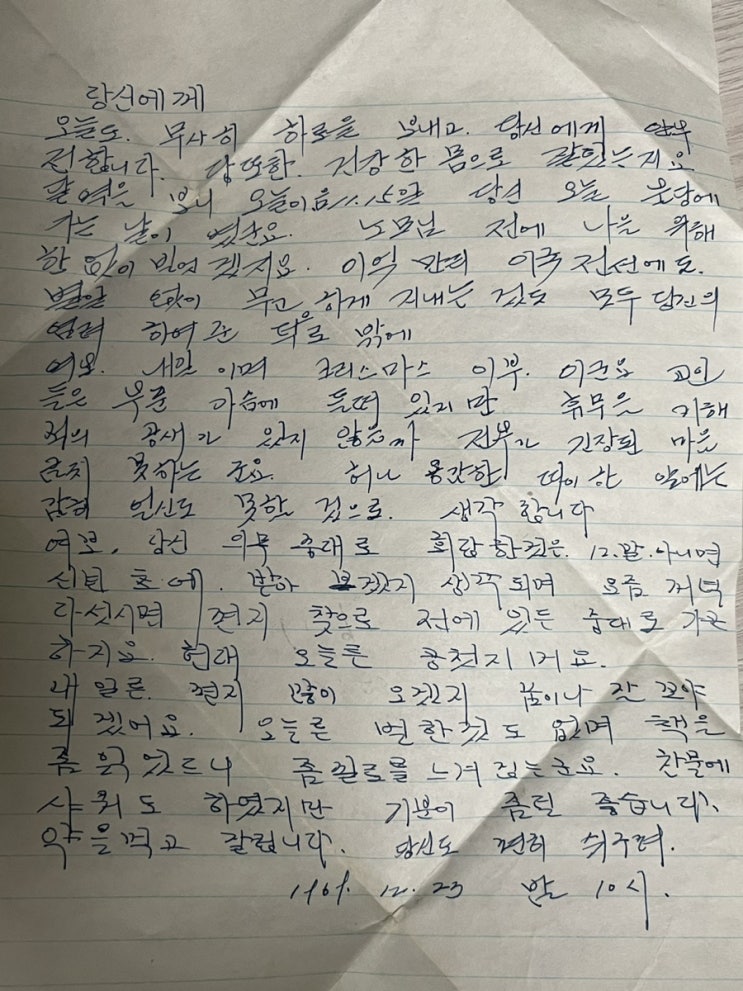 당신에게
오늘도. 무사히 하루를 보내고. 당신에게 안부
전합니다. 당신 또한. 건강한 몸으로 잘있는지요
달력을 보니 오늘이 음11.15일 당신 오늘 불당에
가는 날이 였군요. 노모님 전에 나를 위해
한 없이 빌었겠지요. 이역 만리 이국 전선에도.
별일 없이 무고 하게 지내는 것도 모두 당신의
염려 하여준 덕으로 밖에
여보. 내일 이며 크리스마스 이부. 이군요
들은 부푼 가슴에 들떠 있지만 휴무을 기해
적의 공세가 있지 않을까 전부가 긴장된 마음
금치 못하는 군요. 허나 용감한 따이한 앞에는
감히 얼신도 못할 것으로. 생각 합니다
여보. 당신 의무 중대로 회답한것은. 12.말.아니면
신년 초.에. 받아 보겠지 생각되며 요즘 저녁
다섯시면 편지 찾으로 전에 있든 중대로 가곤
하지요. 헌대 오늘른 공천지 1거요.
내일른. 편지 많이 오겠지 꿈이나 잘 꼬야
되겠어요. 오늘른 별한것도 없며 책을
좀 읽었드니 좀 필로를 느껴 집는군요. 찬물에
샤워도 하였지만 기분이 좀덜 좋습니다.
약을먹고 잘렵니다. 당신도 편히 쉬구려.
1969. 12. 23 밤 10시.